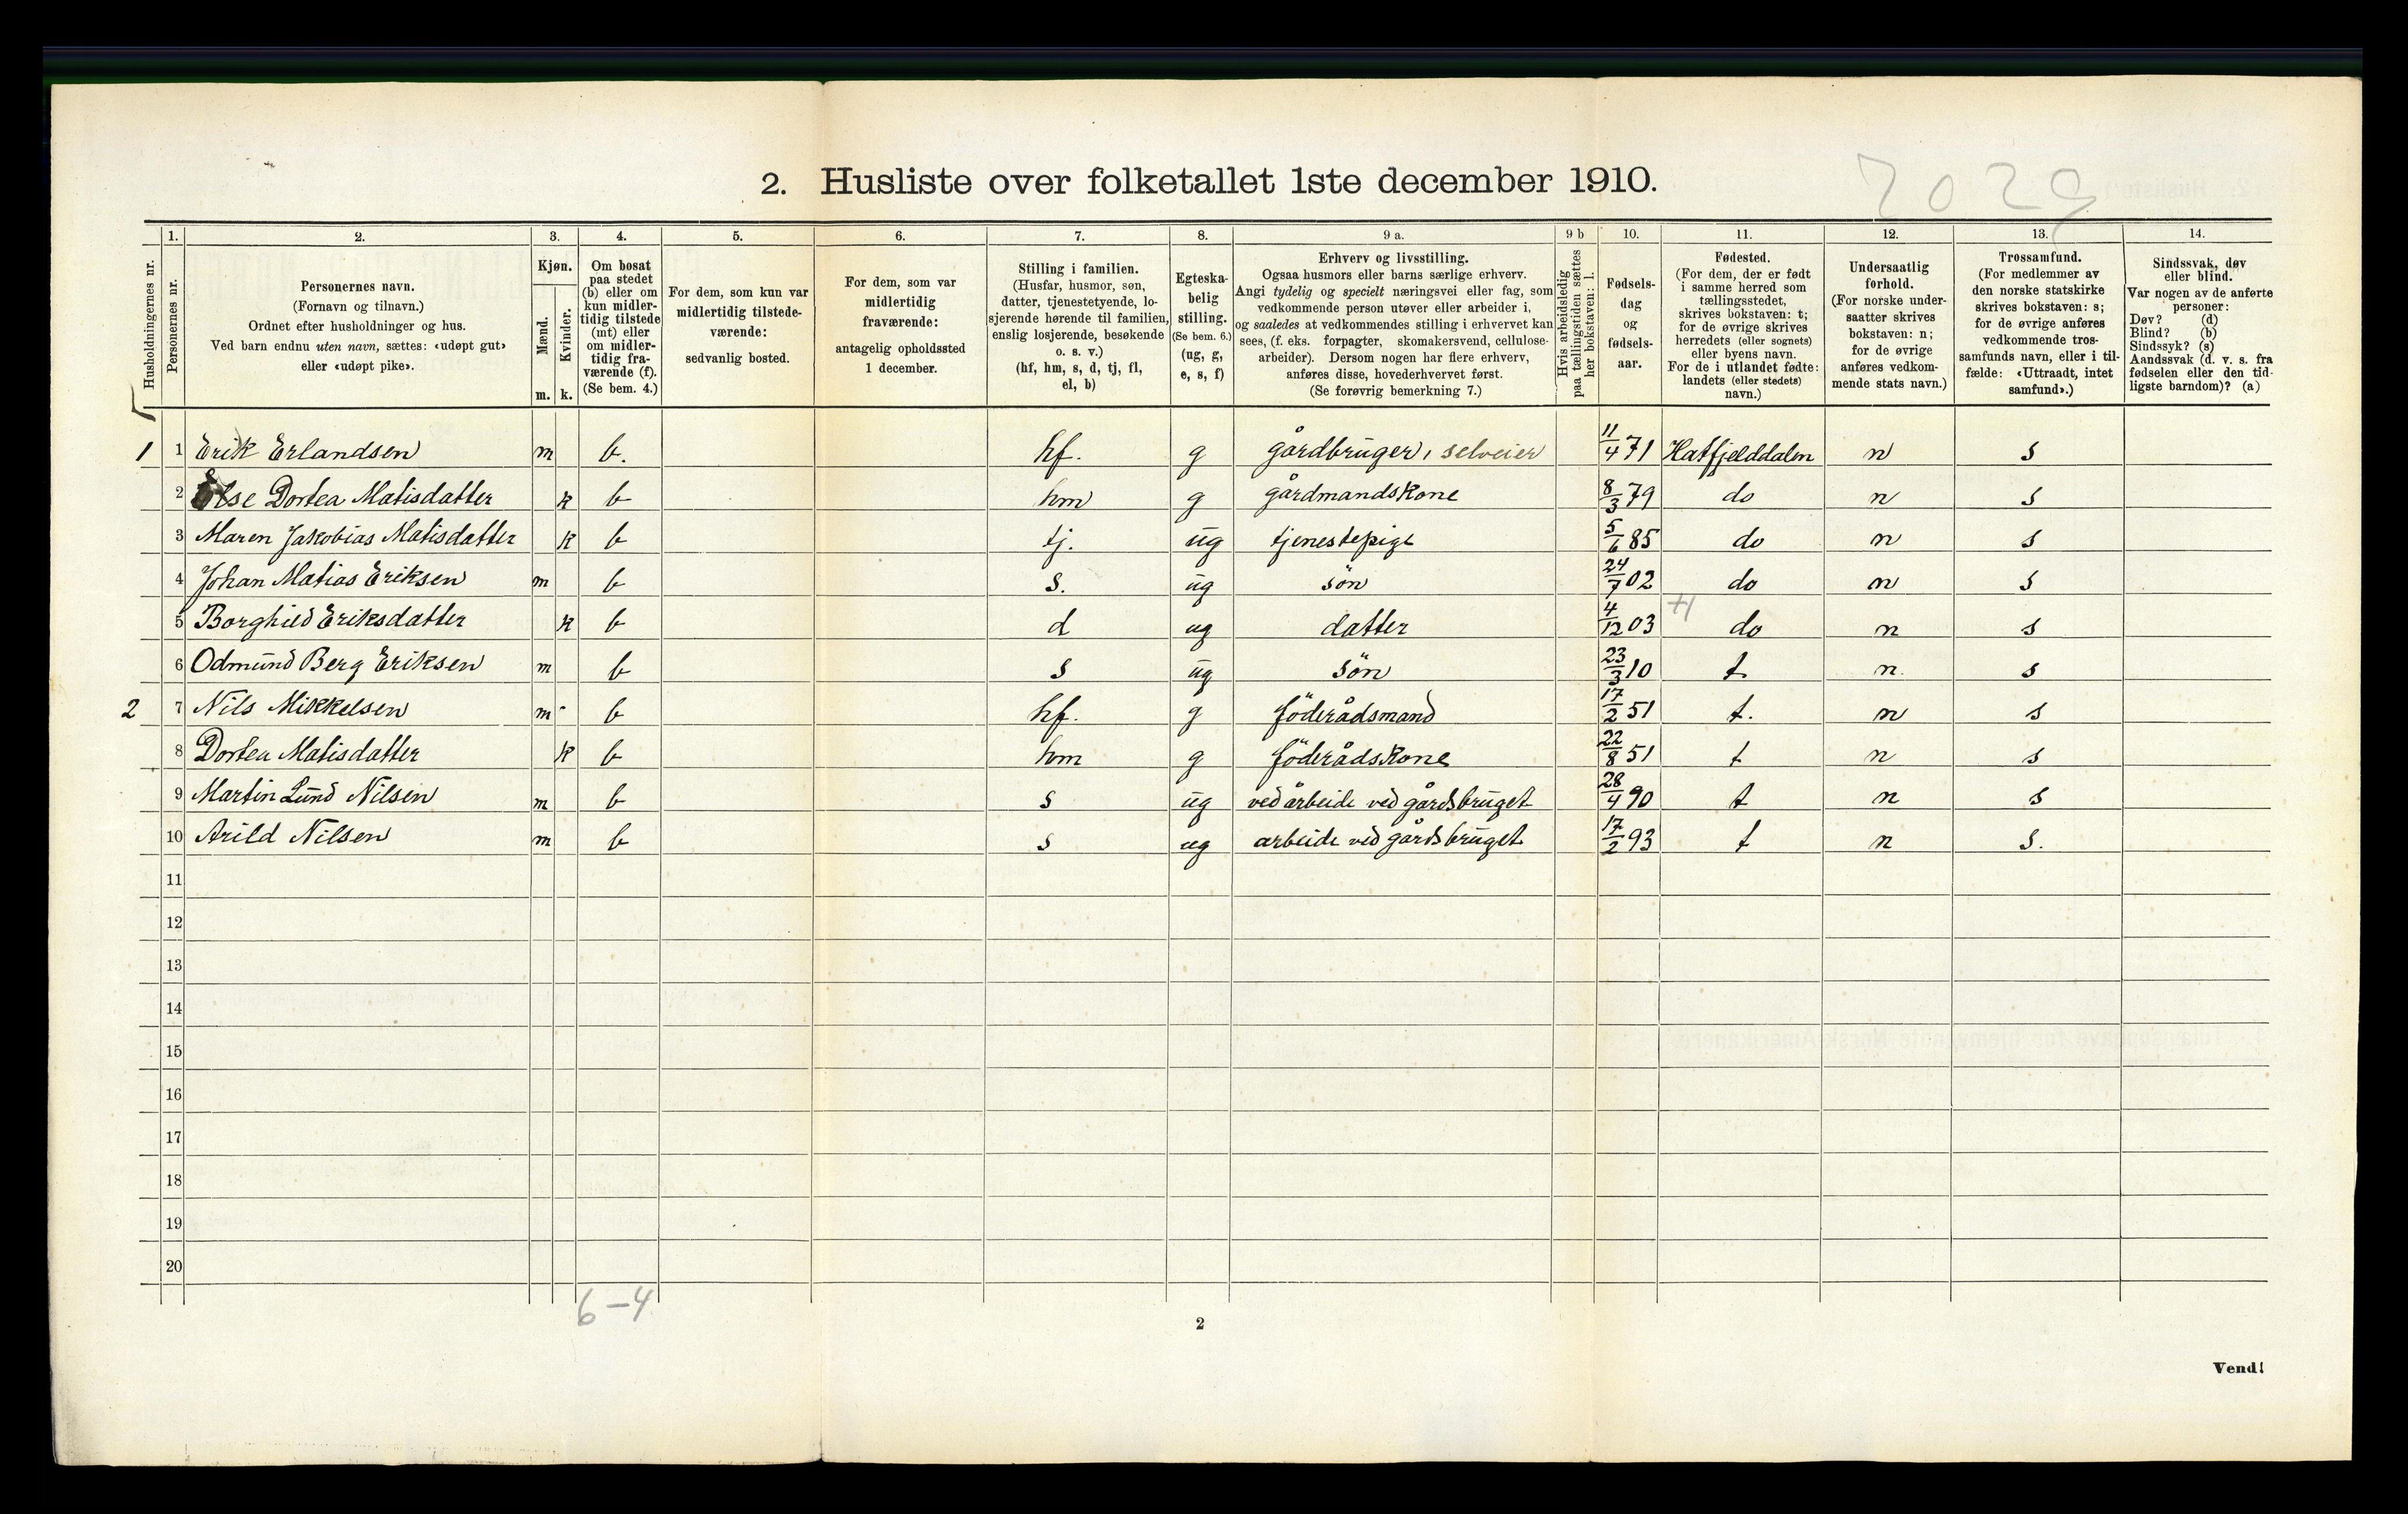 2. Husliste over folketallet 1ste december 1910.
2029
1. 2. 3. 4. 5. 6. 7. 8. 9 a. 9 b 10. 11. 12. 13. 14.
Husholdningernes nr.
Personernes nr.
Personernes navn.
(Fornavn og tilnavn.)
Ordnet efter husholdninger og hus.
Ved barn endnu uten navn, sættes: «udøpt gut»
eller «udøpt pike».
Kjøn.
Mænd.
Kvinder.
m. k.
Om bosat
paa stedet
(b) eller om
kun midler-
tidig tilstede
(mt) eller
om midler-
tidig fra-
værende (f).
(Se bem. 4.)
For dem, som kun var
midlertidig tilstede-
værende:
sedvanlig bosted.
For dem, som var
midlertidig
fraværende:
antagelig opholdssted
1 december.
Stilling i familien.
(Husfar, husmor, søn,
datter, tjenestetyende, lo-
sjerende hørende til familien,
enslig losjerende, besøkende
o. s. v.)
(hf, hm, s, d, tj, fl,
el, b)
Egteska-
belig
stilling.
(Se bem. 6.)
(ug, g,
e, s, f)
Erhverv og livsstilling.
Ogsaa husmors eller barns særlige erhverv.
Angi tydelig og specielt næringsvei eller fag, som
vedkommende person utøver eller arbeider i,
og saaledes at vedkommendes stilling i erhvervet kan
sees, (f. eks. forpagter, skomakersvend, cellulose-
arbeider). Dersom nogen har flere erhverv,
anføres disse, hovederhvervet først.
(Se forøvrig bemerkning 7.)
Hvis arbeidsledig
paa tællingstiden sættes
her bokstaven: l.
Fødsels-
dag
og
fødsels-
aar.
Fødested.
(For dem, der er født
i samme herred som
tællingsstedet,
skrives bokstaven: t;
for de øvrige skrives
herredets (eller sognets)
eller byens navn.
For de i utlandet fødte:
landets (eller stedets)
navn.)
Undersaatlig
forhold.
(For norske under-
saatter skrives
bokstaven: n;
for de øvrige
anføres vedkom-
mende stats navn.)
Trossamfund.
(For medlemmer av
den norske statskirke
skrives bokstaven: s;
for de øvrige anføres
vedkommende tros-
samfunds navn, eller i til-
fælde: «Uttraadt, intet
samfund».)
Sindssvak, døv
eller blind.
Var nogen av de anførte
personer:
Døv? (d)
Blind? (b)
Sindssyk? (s)
Aandssvak (d. v. s. fra
fødselen eller den tid-
ligste barndom)? (a)
1 1 Erik Erlandsen m b. hf. g gårdbruger, selveier 11/4 71 Hatfjelddalen n s
2 Else Dortea Matisdatter k b hm g gårdmandskone 8/3 79 do n s
3 Maren Jakobias Matisdatter k b tj. ug tjenestepige 5/6 85 do n s
4 Johan Matias Eriksen m b s. ug sön 24/7 02 do n s
5 Borghild Eriksdatter k b d ug datter 4/12 03 do n s
6 Odmund Berg Eriksen m b s ug sön 23/3 10 t n. s
2 7 Nils Mikkelsen m b hf. g föderådsmand 17/2 51 t. n s
8 Dortea Matisdatter k b hm g föderådskone 22/8 51 t n s
9 Martin Lund Nilsen m b s ug ved arbeide ved gårdsbruget 28/4 90 t n s
10 Arild Nilsen m b s ug arbeide ved gårdsbruget 17/2 93 t n s.
11
12
13
14
15
16
17
18
19
20
6-4
2
Vend!